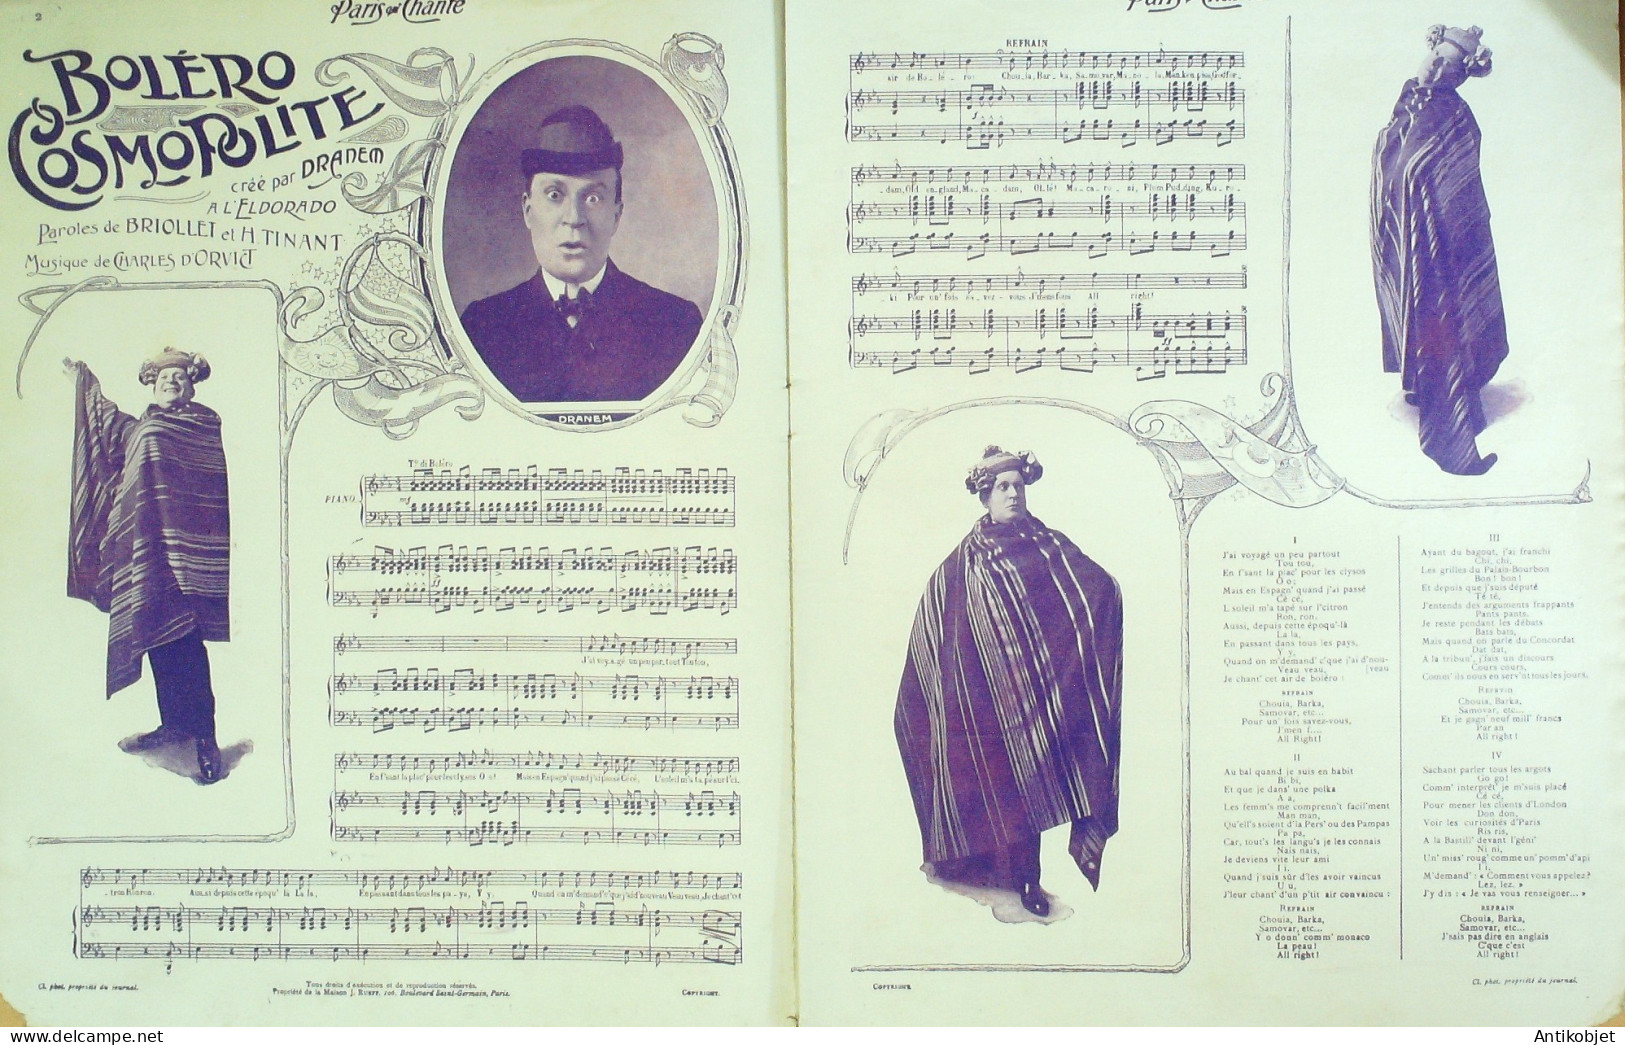 2
Paris qui Chante
BOLÉRO
COSMOPOLITE
créé par DRANEM
A L'ELDORADO
Paroles de BRIOLLET et H. TINANT
Musique de CHARLES D'ORVICT
DRANEM
To di Boléro
PIANO
mf
ff
J'ai voyagé un peu partout Toutou,
En f'sant la plac' pour les clysos O o! Mais en Espagn' quand j'ai passé Cécé, L'soleil m'a tapé sur l'ci-
-tron Ronron. Aussi depuis cette époqu' là La la, En passant dans tous les pa-ys, Y y, Quand on m'demand' c'que j'ai d'nouveau Veau veau, Je chant' c't
Cl. phot. propriété du journal.
Tous droits d'exécution et de reproduction réservés.
Propriété de la Maison J. RUEFF, 106, Boulevard Saint-Germain, Paris.
COPYRIGHT.
REFRAIN
air de Bo-lé-ro: Chou-ia, Bar-ka, Sa-mo-var,
-dam, Old en-gland, Ma-ca-dam, Ol-lé! Ma-ca-ro-ni, Plom Pud-ding, Ku-ro-
-ki Pour un' fois sa-vez-vous J'm'en fous All right!
ff
I
J'ai voyagé un peu partout
Tou tou,
En f'sant la plac' pour les clysos
O o;
Mais en Espagn' quand j'ai passé
Cé cé,
L soleil m'a tapé sur l'citron
Ron, ron.
Aussi, depuis cette époqu'-là
La la,
En passant dans tous les pays,
Y y,
Quand on m'demand' c'que j'ai d'nou-
Veau veau, [veau
Je chant' cet air de boléro :
REFRAIN
Chouia, Barka,
Samovar, etc...
Pour un' fois savez-vous,
J'men f....
All Right!
II
Au bal quand je suis en habit
Bi bi,
Et que je dans' une polka
A a,
Les femm's me comprenn't facil'ment
Man man,
Qu'ell's soient d'la Pers' ou des Pampas
Pa pa,
Car, tout's les langu's je les connais
Nais nais,
Je deviens vite leur ami
I i,
Quand j'suis sûr d'les avoir vaincus
U u,
J'leur chant' d'un p'tit air convaincu :
REFRAIN
Chouia, Barka,
Samovar, etc...
Y o donn' comm' monaco
La peau!
All right!
III
Ayant du bagout, j'ai franchi
Chi, chi,
Les grilles du Palais-Bourbon
Bon! bon!
Et depuis que j'suis député
Té té,
J'entends des arguments frappants
Pants pants,
Je reste pendant les débats
Bats bats,
Mais quand on parle du Concordat
Dat dat,
A la tribun', j'fais un discours
Cours cours,
Comm' ils nous en serv'nt tous les jours.
REFRAIN
Chouia, Barka,
Samovar, etc...
Et je gagn' neuf mill' francs
Par an
All right!
IV
Sachant parler tous les argots
Go go!
Comm' interprèt' je m'suis placé
Cé cé,
Pour mener les clients d'London
Don don,
Voir les curiosités d'Paris
Ris ris,
A la Bastill' devant l'géni'
Ni ni,
Un' miss' roug' comme un' pomm' d'api
I i,
M'demand' : « Comment vous appelez?
Lez, lez. »
J'y dis : « Je vas vous renseigner... »
REFRAIN
Chouia, Barka,
Samovar, etc...
J'sais pas dire en anglais
C'que c'est
All right!
COPYRIGHT.
Cl. phot. propriété du journal.
Antikobjet